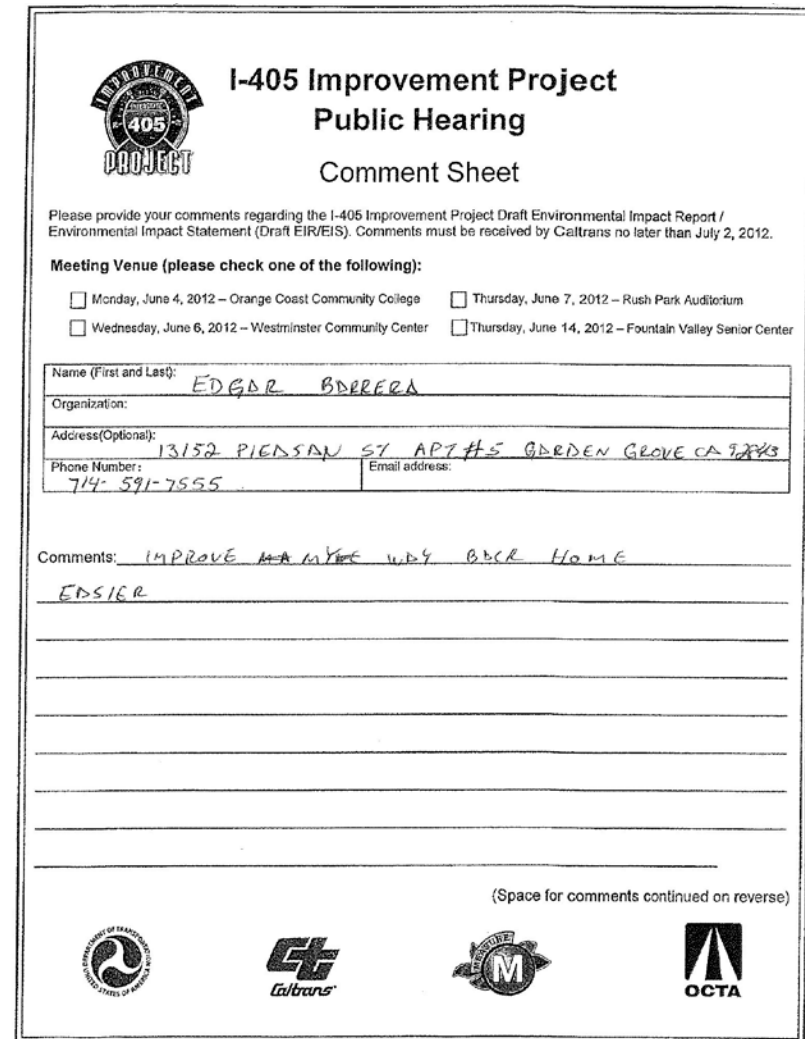 IMPROVEMENT
INTERSTATE
405
PROJECT
I-405 Improvement Project
Public Hearing
Comment Sheet
Please provide your comments regarding the I-405 Improvement Project Draft Environmental Impact Report /
Environmental Impact Statement (Draft EIR/EIS). Comments must be received by Caltrans no later than July 2, 2012.
Meeting Venue (please check one of the following):
Monday, June 4, 2012 – Orange Coast Community College
Thursday, June 7, 2012 – Rush Park Auditorium
Wednesday, June 6, 2012 – Westminster Community Center
Thursday, June 14, 2012 – Fountain Valley Senior Center
Name (First and Last): EDGAR BARRERA
Organization:
Address(Optional): 13152 PIEASAN ST APT #5 GARDEN GROVE CA 92843
Phone Number: 714-591-7555
Email address:
Comments: IMPROVE MY WAY BACK HOME
EASIER
(Space for comments continued on reverse)
DEPARTMENT OF TRANSPORTATION
UNITED STATES OF AMERICA
Caltrans
MEASURE
M
OCTA